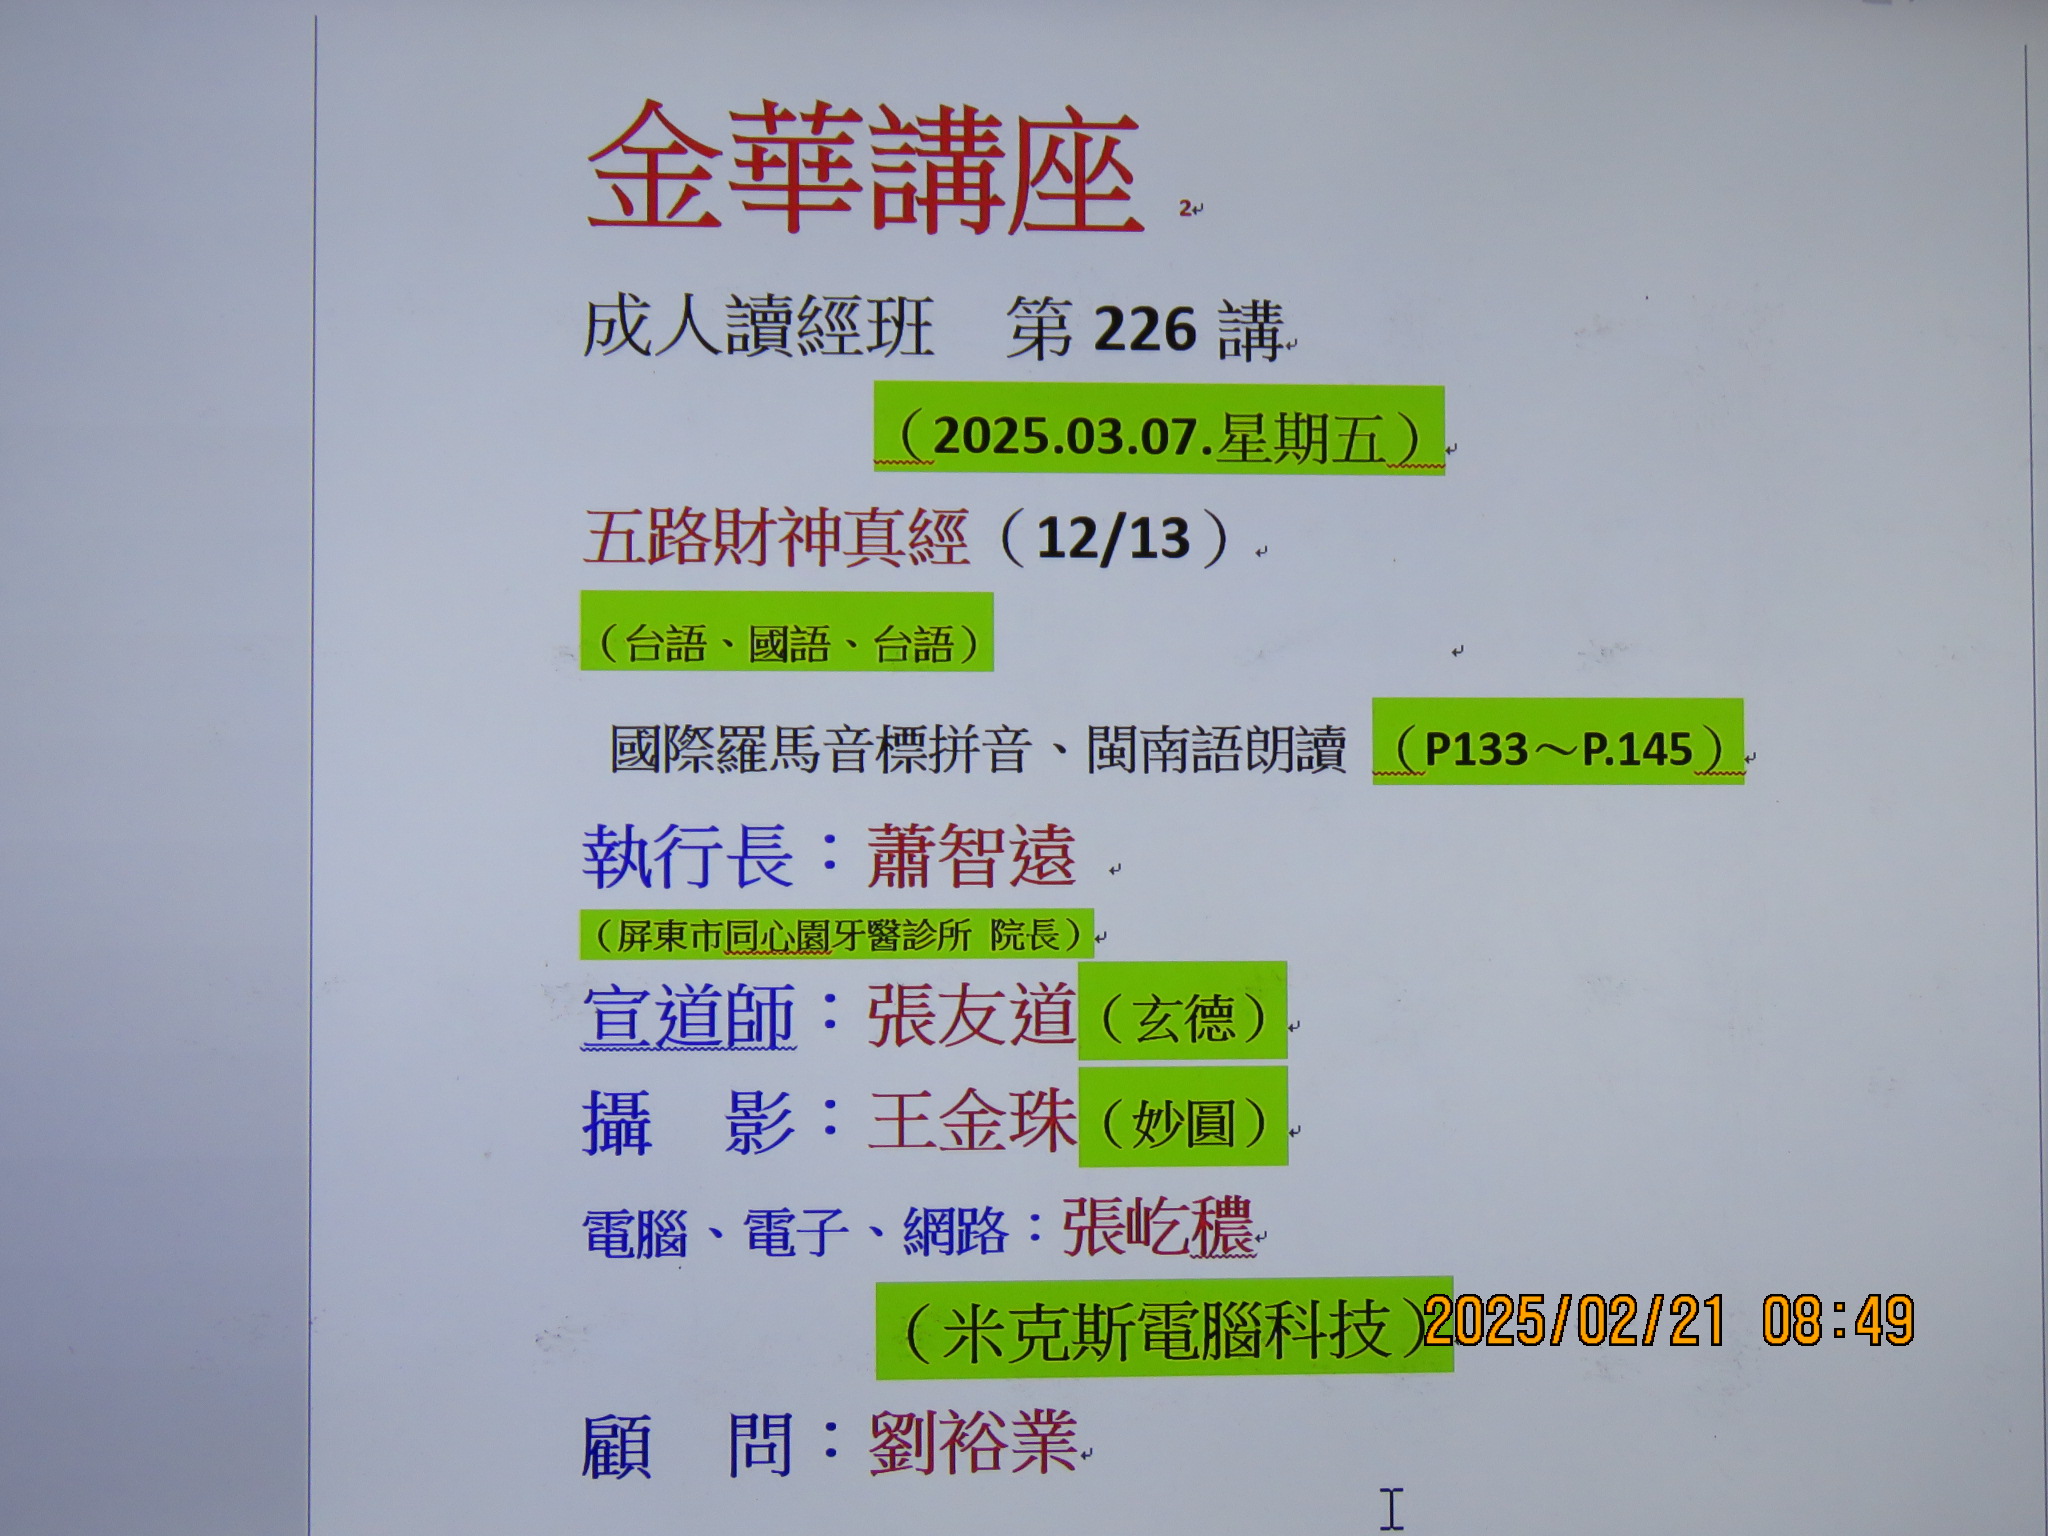 金華講座 2
成人讀經班 第 226 講
（2025.03.07.星期五）
五路財神真經（12/13）
（台語、國語、台語）
國際羅馬音標拼音、閩南語朗讀（P133～P.145）
執行長：蕭智遠
（屏東市同心園牙醫診所 院長）
宣道師：張友道（玄德）
攝 影：王金珠（妙圓）
電腦、電子、網路：張屹穠
（米克斯電腦科技）
2025/02/21 08:49
顧 問：劉裕業